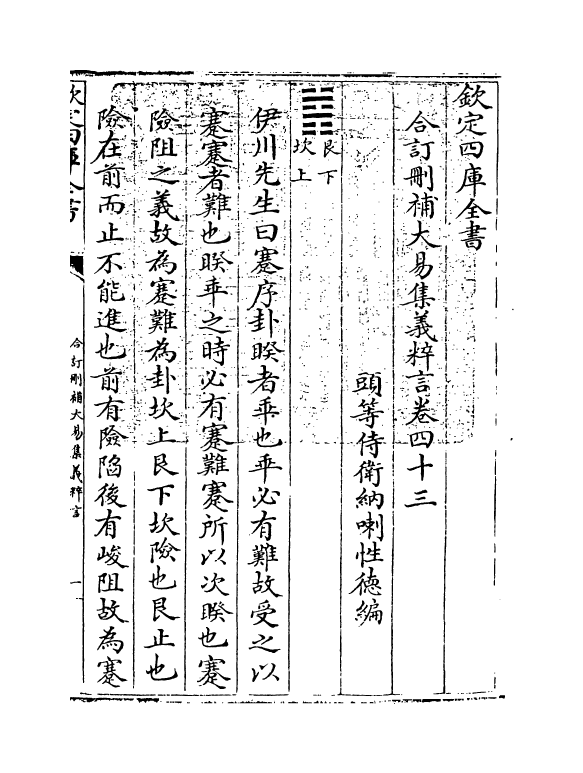 欽定四庫全書
合訂刪補大易集義粹言卷四十三
頭等侍衛納喇性德編
艮下
坎上
伊川先生曰蹇序卦睽者乖也乖必有難故受之以
蹇蹇者難也睽乖之時必有蹇難蹇所以次睽也蹇
險阻之義故為蹇難為卦坎上艮下坎險也艮止也
險在前而止不能進也前有險陷後有峻阻故為蹇
欽定四庫全書
合訂刪補大易集義粹言
一